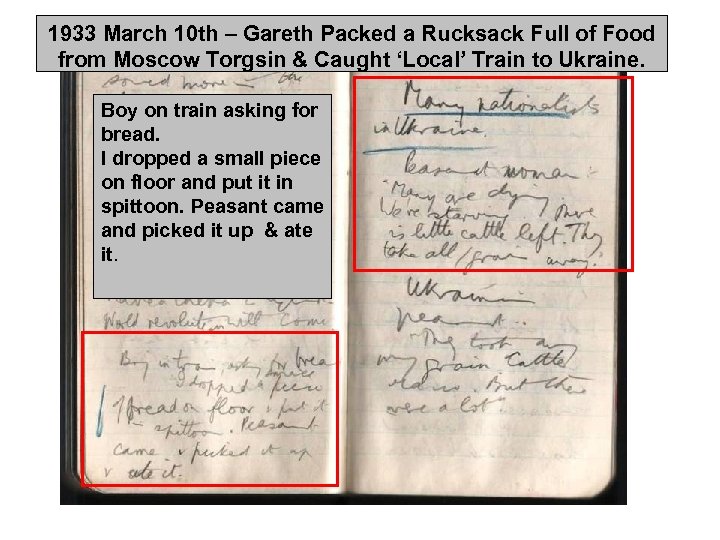 1933 March 10 th – Gareth Packed a Rucksack Full of Food
from Moscow Torgsin & Caught ‘Local’ Train to Ukraine.
Boy on train asking for
bread.
I dropped a small piece
on floor and put it in
spittoon. Peasant came
and picked it up & ate
it.
World revolution will come.
Boy in train, asking for brea
I dropped a piece
of bread on floor & put it
in spittoon. Peasant
came & picked it up
& ate it.
Many nationalists
in Ukraine.
Peasant woman:
"Many are dying.
We're starving. There
is little cattle left. They
take all grain away."
Ukrainian
peasant.
"They took
my grain cattle
But there
were a lot"